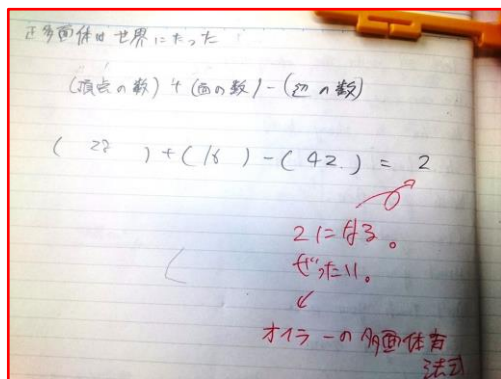 正多面体は世界にたった
(頂点の数) + (面の数) - (辺の数)
( 28 ) + ( 16 ) - ( 42 ) = 2
2になる。
ぜったい。
オイラーの多面体方
法式